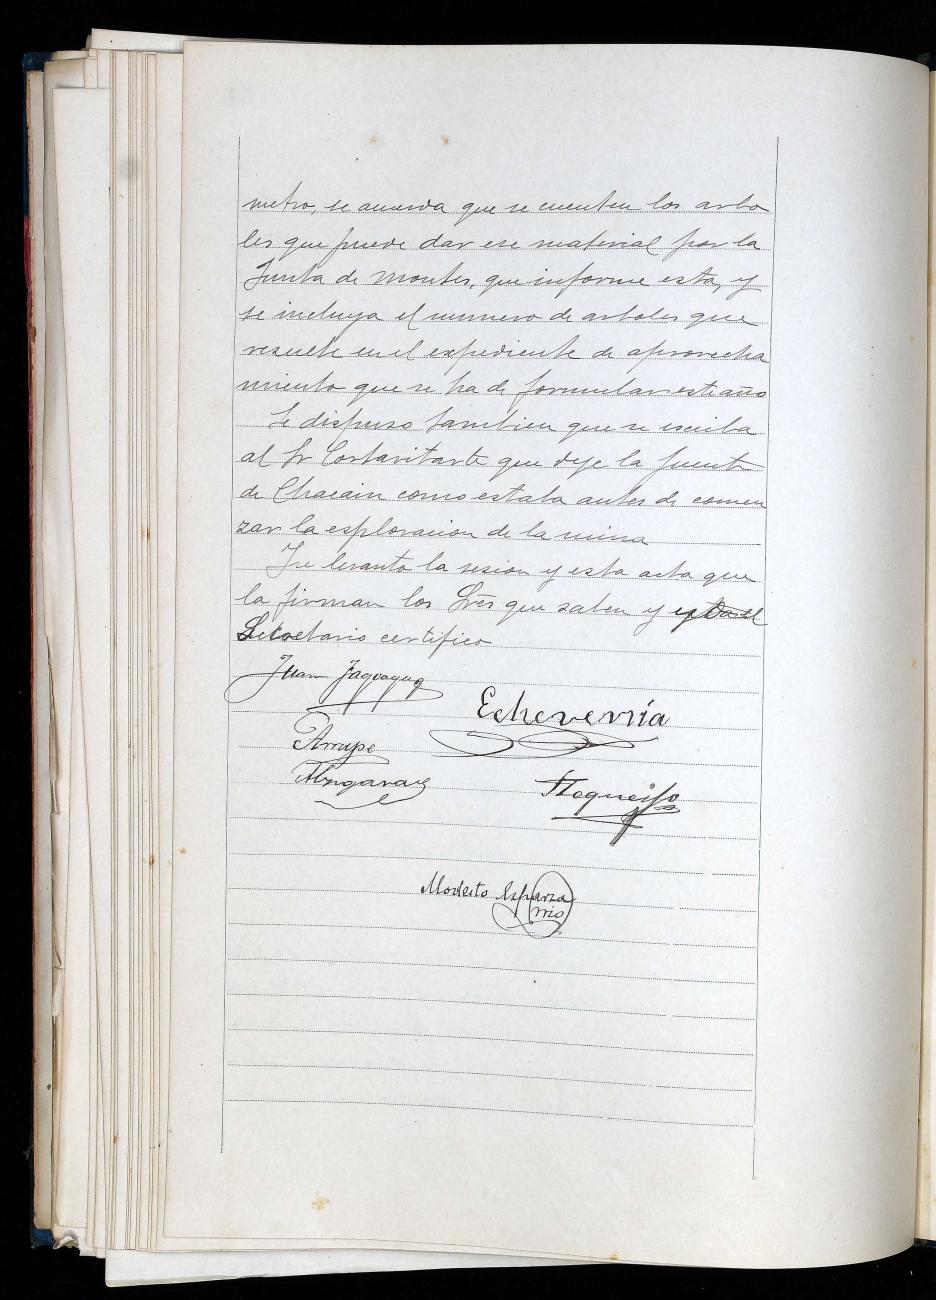 metro, se acuerda que se cuenten los arbo
les que puede dar ese material por la
Junta de Montes, que informe esta, y
se incluya el numero de arboles que
resulte en el expediente de aprovecha
miento que se ha de formular este año
Se dispuso tambien que se escriba
al Sr Costaritarte que deje la fuente
de Chacain como estaba antes de comen
zar la esploracion de la mina
Se levanto la sesion y esta acta que
la firman los Sres que saben y
Secretario certifico
Juan
Echeverria
Arrupe
Modesto Esparza